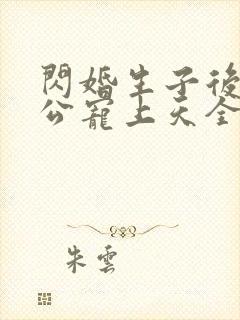 閃婚生子後
公寵上天全
朱雲